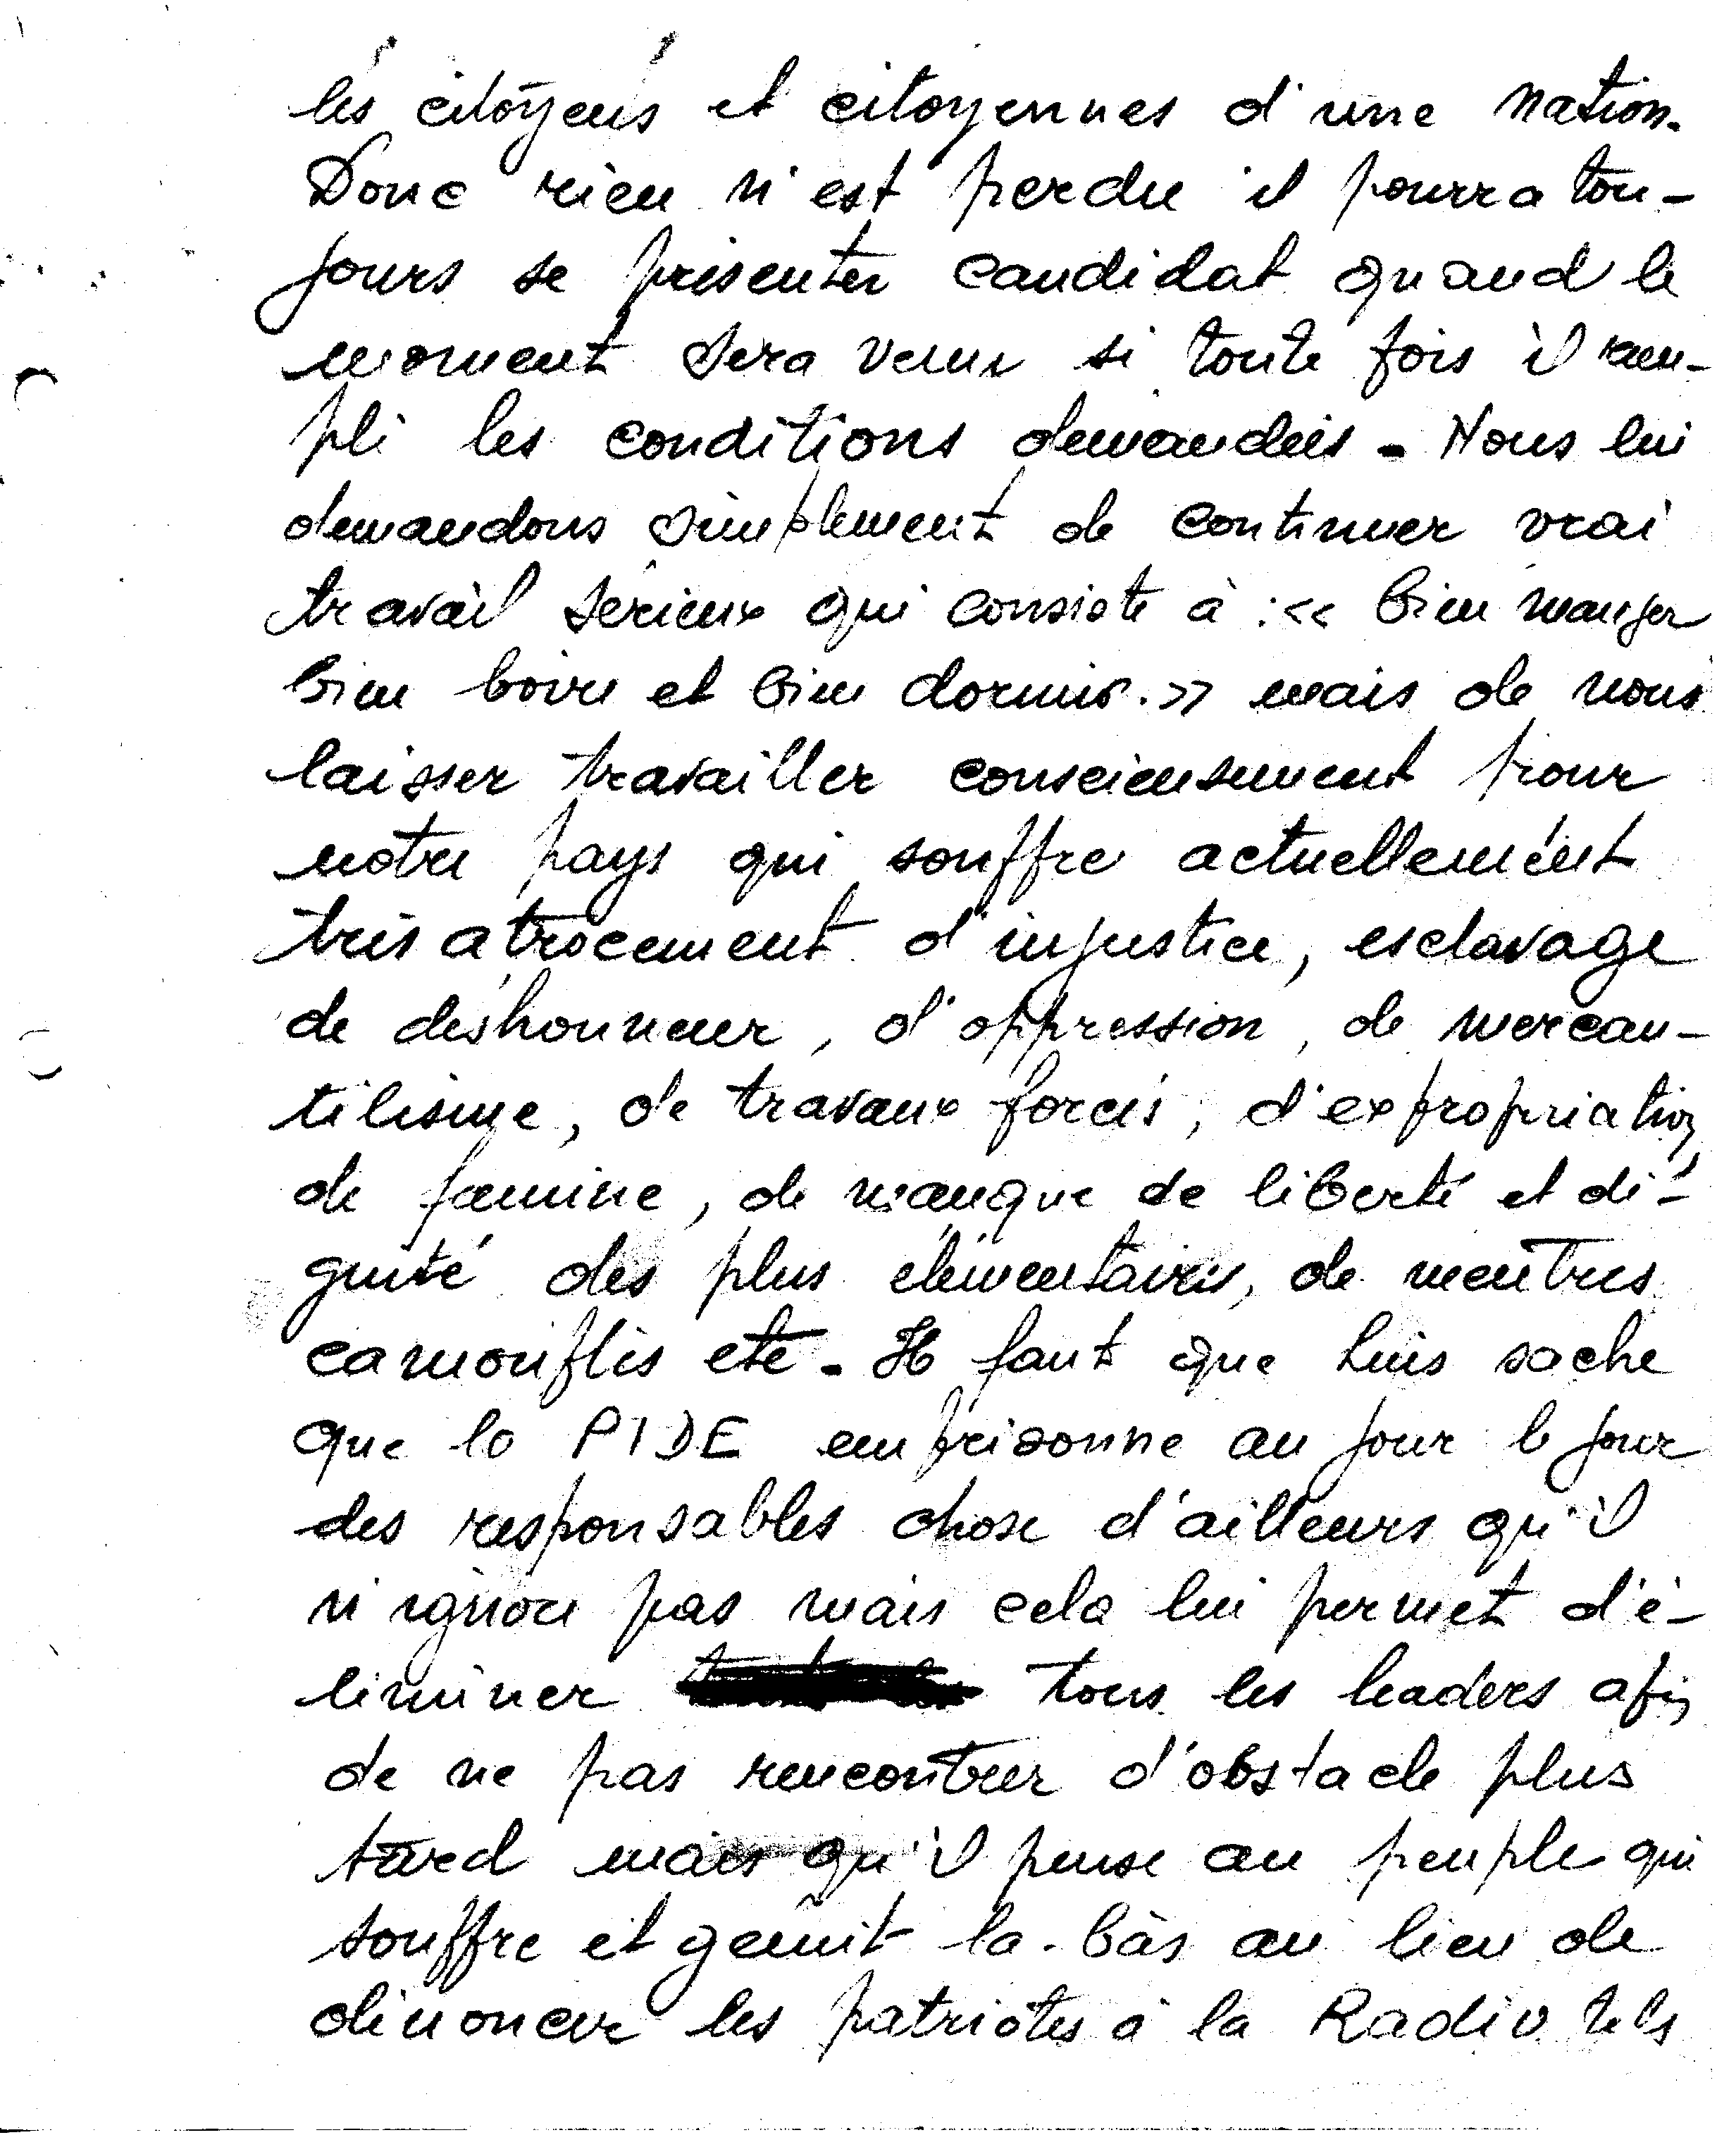 les citoyens et citoyennes d'une nation.
Donc rien n'est perdu il pourra tou-
jours se présenter candidat quand le
moment sera venu si toute fois il rem-
pli les conditions demandées. Nous lui
demandons simplement de continuer vrai
travail sérieux qui consiste à : << bien manger
bien boire et bien dormir. >> mais de nous
laisser travailler consciensement pour
notre pays qui souffre actuellement
très atrocement d'injustice, esclavage
de deshonneur, d'oppression, de mercan-
tilisme, de travaux forcés, d'expropriation,
de famine, de manque de liberté et di-
gnité des plus élémentaires, de meutres
camouflés etc. Il faut que Luis sache
que la PIDE emprisonne au jour le jour
des responsables chose d'ailleurs qu'il
n'ignore pas mais cela lui permet d'é-
liminer tous les leaders afin
de ne pas rencontrer d'obstacle plus
tard mais qu'il pense au peuple qui
souffre et gemit la-bàs au lieu de
dénoncer les patriotes à la Radio tels